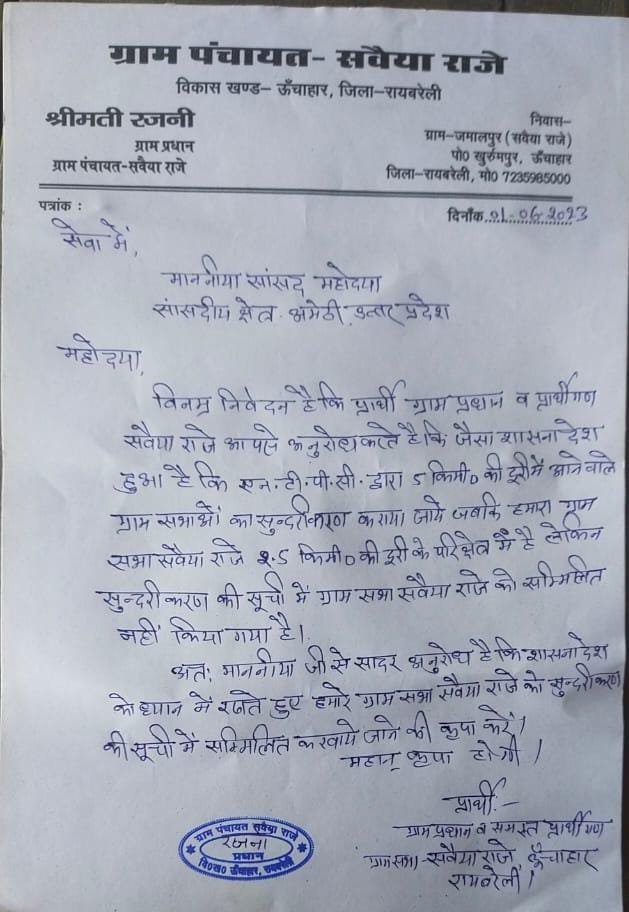 ग्राम पंचायत- सवैया राजे
विकास खण्ड- ऊँचाहार, जिला-रायबरेली
श्रीमती रजनी
ग्राम प्रधान
ग्राम पंचायत-सवैया राजे
निवास-
ग्राम-जमालपुर (सवैया राजे)
पो0 खुर्रुमपुर, ऊँचाहार
जिला-रायबरेली, मो0 7235985000
पत्रांक :
दिनाँक 01-06-2023
सेवा में,
माननीया सांसद महोदया
सांसदीय क्षेत्र अमेठी, उत्तर प्रदेश
महोदया,
विनम्र निवेदन है कि प्रार्थी ग्राम प्रधान व प्रार्थीगण
सवैया राजे आपसे अनुरोध करते है कि जैसा शासनादेश
हुआ है कि एन.टी.पी.सी. द्वारा 5 किमी0 की दूरी में आने वाले
ग्राम सभाओं का सुन्दरीकरण कराया जाये जबकि हमारा ग्राम
सभा सवैया राजे 2.5 किमी0 की दूरी के परिक्षेत्र में है लेकिन
सुन्दरीकरण की सूची में ग्राम सभा सवैया राजे को सम्मिलित
नहीं किया गया है।
अतः माननीया जी से सादर अनुरोध है कि शासनादेश
को ध्यान में रखते हुए हमारे ग्राम सभा सवैया राजे को सुन्दरीकरण
की सूची में सम्मिलित करवाये जाने की कृपा करें।
महान् कृपा होगी।
प्रार्थी:-
ग्राम प्रधान व समस्त प्रार्थीगण
ग्राम सभा-सवैया राजे, ऊँचाहार
रायबरेली।
ग्राम पंचायत सवैया राजे
रजना
प्रधान
वि0ख0 ऊँचाहार, रायबरेली